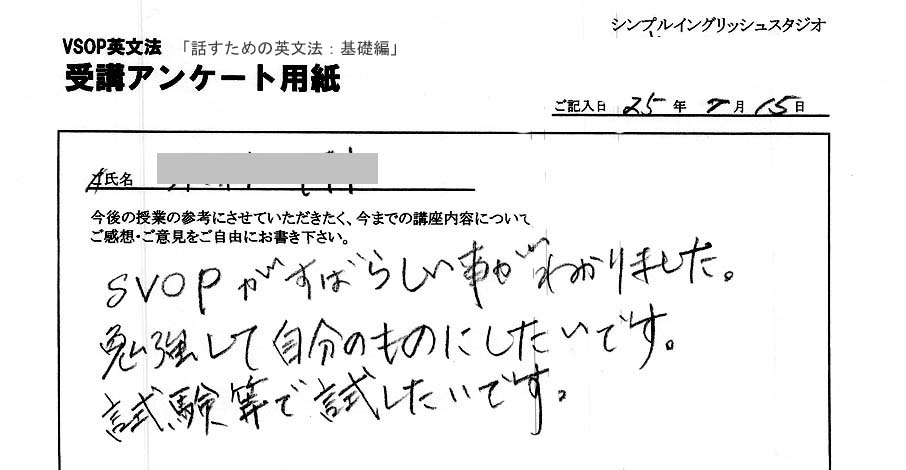 シンプルイングリッシュスタジオ
VSOP英文法 「話すための英文法：基礎編」
受講アンケート用紙
ご記入日 25年 7月 15日
氏名
今後の授業の参考にさせていただきたく、今までの講座内容について
ご感想・ご意見をご自由にお書き下さい。
SVOPがすばらしい事がわかりました。
勉強して自分のものにしたいです。
試験等で試したいです。